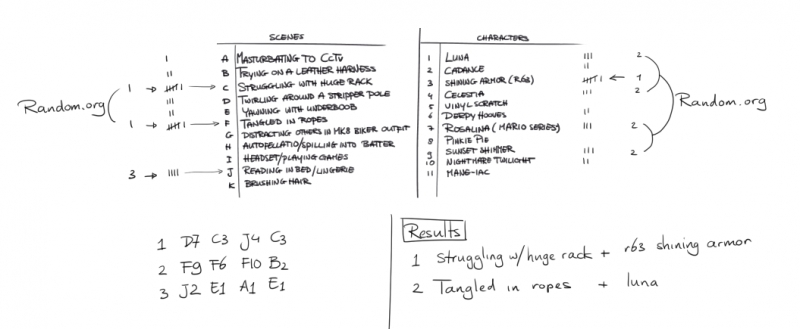 SCENES
A MASTURBATING TO CCTV
B TRYING ON A LEATHER HARNESS
1 → C STRUGGLING WITH HUGE RACK
D TWIRLING AROUND A STRIPPER POLE
E YAWNING WITH UNDERBOOB
1 → F TANGLED IN ROPES
G DISTRACTING OTHERS IN MK8 BIKER OUTFIT
H AUTOFELLATIO/SPILLING INTO BATTER
I HEADSET/PLAYING GAMES
3 → J READING IN BED/LINGERIE
K BRUSHING HAIR
Random.org
CHARACTERS
1 LUNA 2
2 CADANCE
3 SHINING ARMOR (R63) ← 1
4 CELESTIA 2
5 VINYL SCRATCH
6 DERPY HOOVES
7 ROSALINA (MARIO SERIES) 2
8 PINKIE PIE
9 SUNSET SHIMMER 2
10 NIGHTMARE TWILIGHT
11 MANE-IAC
Random.org
1 D7 C3 J4 C3
2 F9 F6 F10 B2
3 J2 E1 A1 E1
Results
1 Struggling w/huge rack + r63 shining armor
2 Tangled in ropes + luna